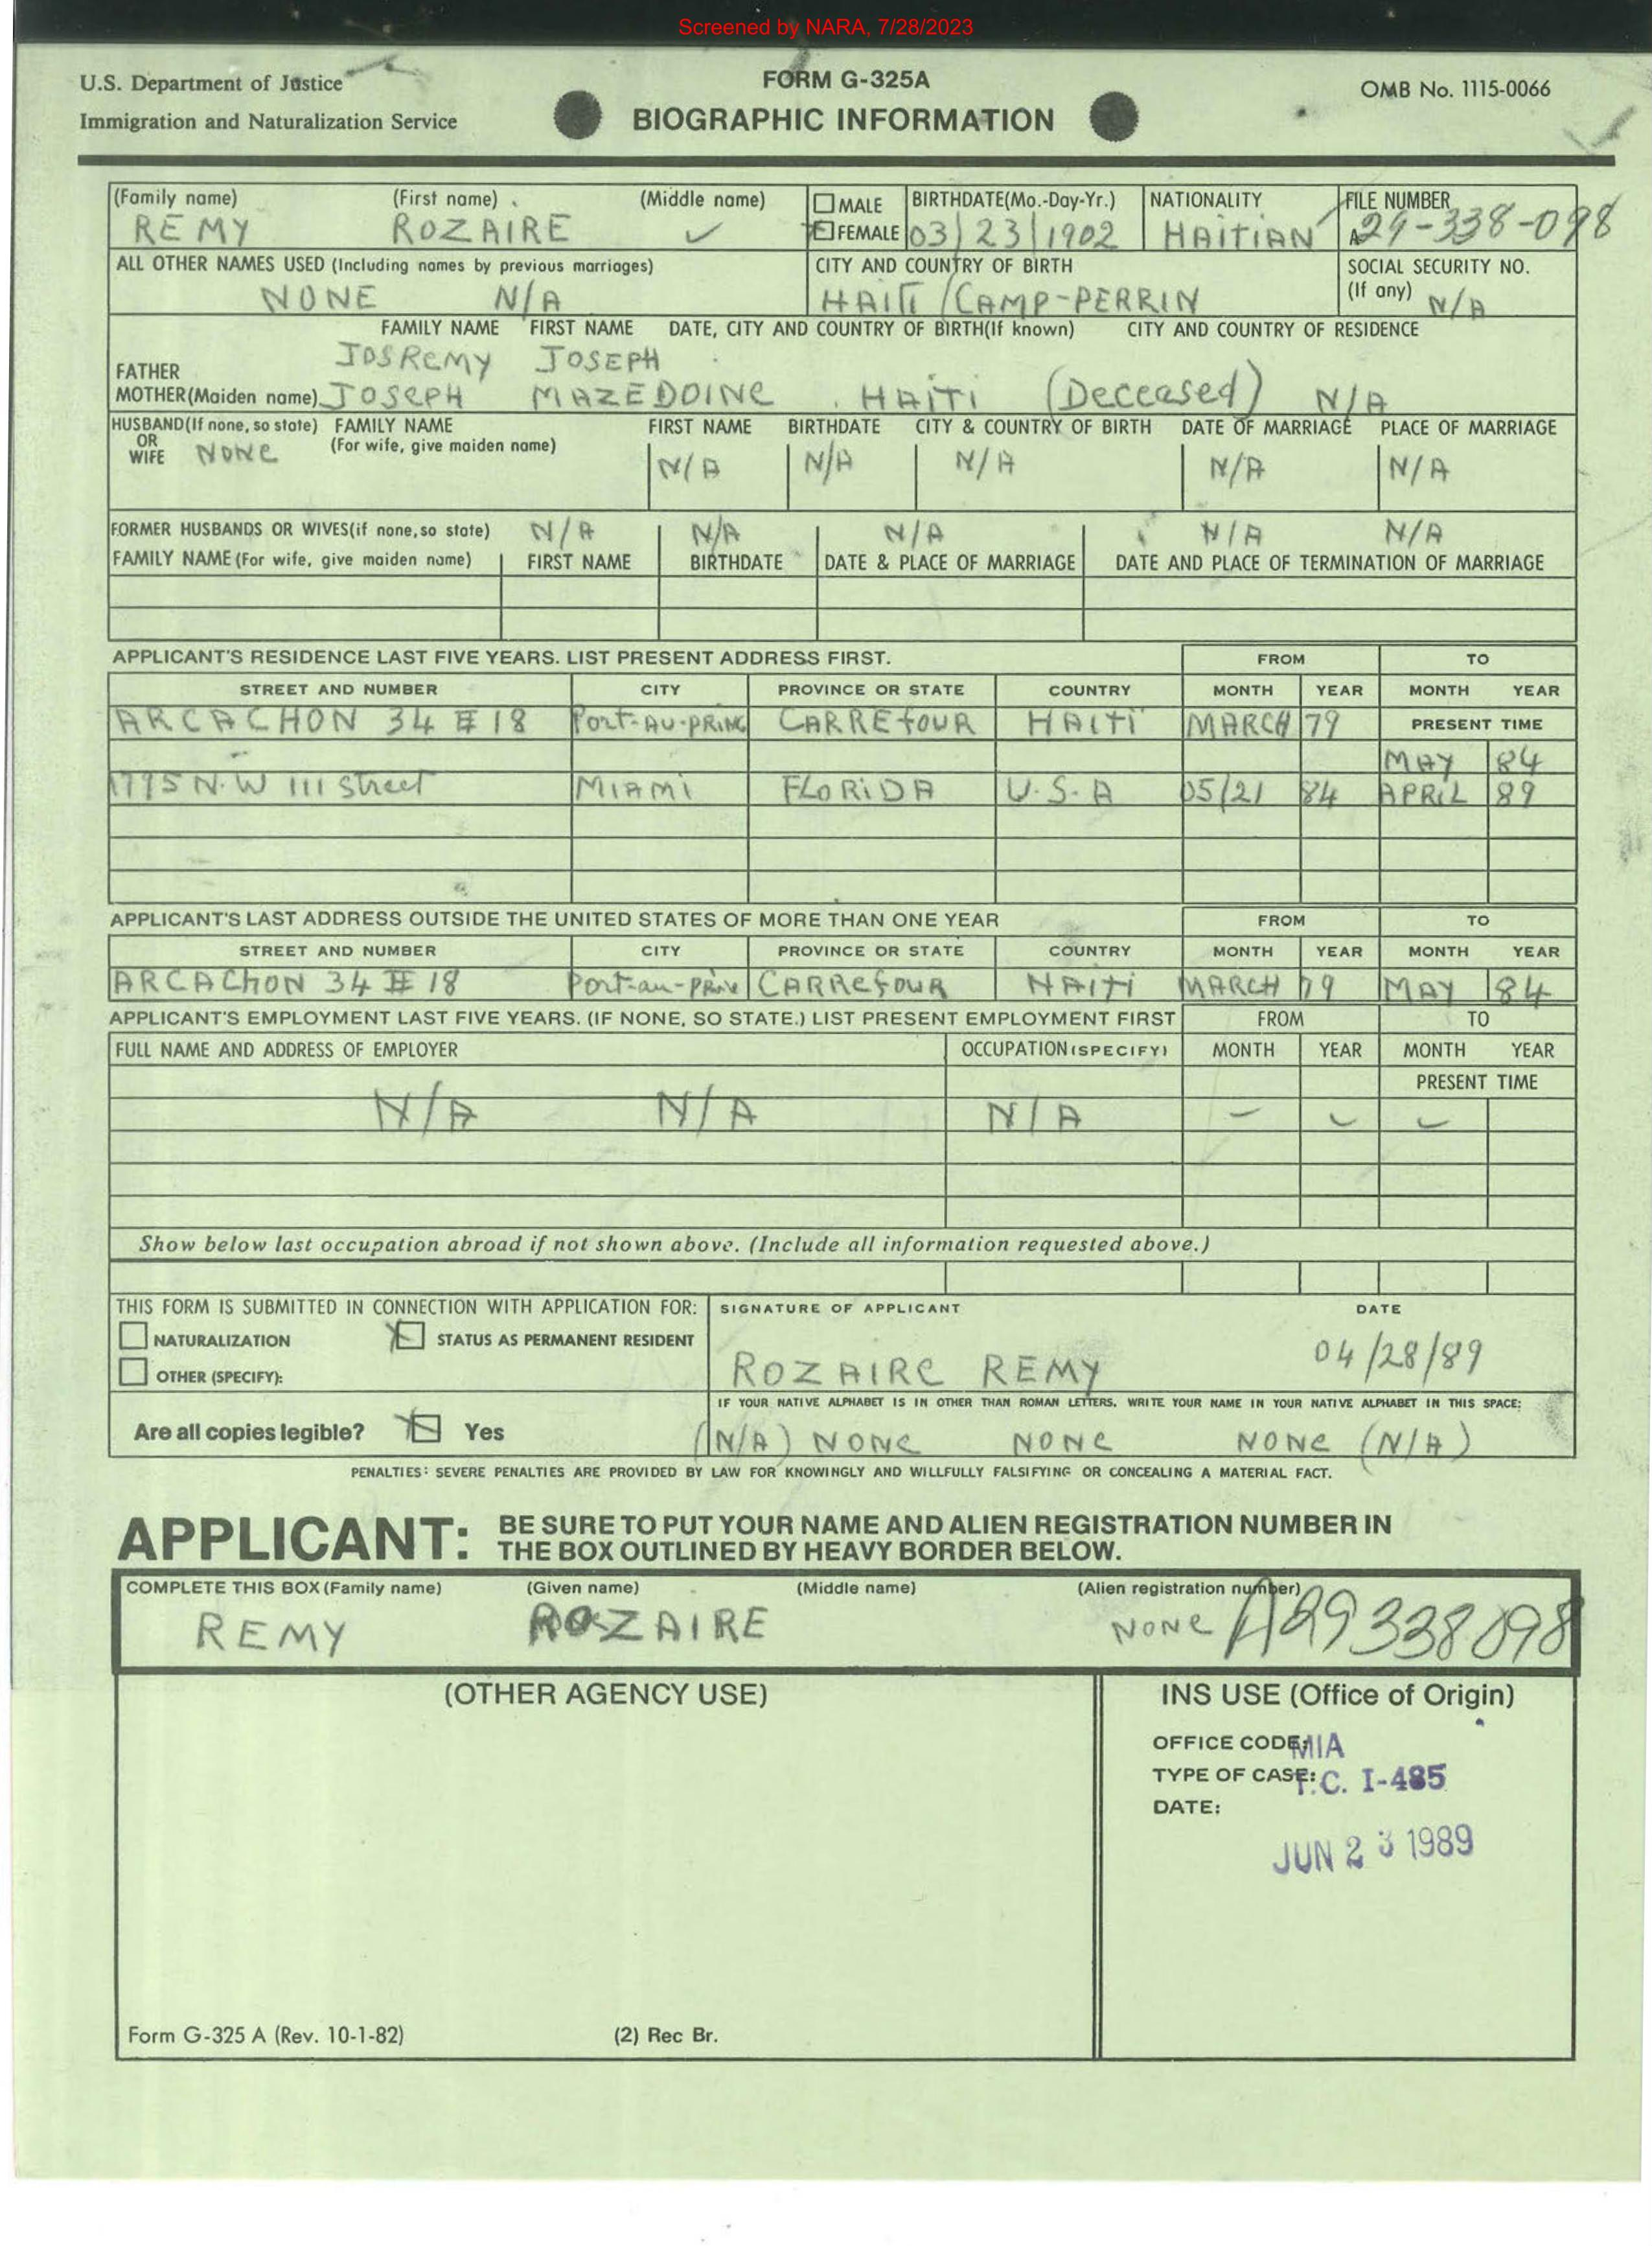 Screened by NARA, 7/28/2023
U.S. Department of Justice
Immigration and Naturalization Service
FORM G-325A
BIOGRAPHIC INFORMATION
OMB No. 1115-0066
(Family name) (First name) (Middle name) MALE FEMALE BIRTHDATE(Mo.-Day-Yr.) NATIONALITY FILE NUMBER
REMY ROZAIRE 03/23/1902 HAITIAN A29-338-098
ALL OTHER NAMES USED (Including names by previous marriages) CITY AND COUNTRY OF BIRTH SOCIAL SECURITY NO.
(If any)
NONE N/A HAITI/CAMP-PERRIN N/A
FAMILY NAME FIRST NAME DATE, CITY AND COUNTRY OF BIRTH(If known) CITY AND COUNTRY OF RESIDENCE
FATHER JOSREMY JOSEPH
MOTHER(Maiden name) JOSEPH MAZEDOINE HAITI (Deceased) N/A
HUSBAND(If none, so state) FAMILY NAME FIRST NAME BIRTHDATE CITY & COUNTRY OF BIRTH DATE OF MARRIAGE PLACE OF MARRIAGE
OR
WIFE NONE (For wife, give maiden name)
N/A N/A N/A N/A N/A
FORMER HUSBANDS OR WIVES(if none,so state) N/A N/A N/A N/A N/A
FAMILY NAME (For wife, give maiden name) FIRST NAME BIRTHDATE DATE & PLACE OF MARRIAGE DATE AND PLACE OF TERMINATION OF MARRIAGE
APPLICANT'S RESIDENCE LAST FIVE YEARS. LIST PRESENT ADDRESS FIRST. FROM TO
STREET AND NUMBER CITY PROVINCE OR STATE COUNTRY MONTH YEAR MONTH YEAR
ARCACHON 34 # 18 Port-AU-PRINC CARREfOUR HAITI MARCH 79 PRESENT TIME
MAY 84
1795 N.W 111 Street MIAMI FLORIDA U.S.A 05/21 84 APRIL 89
APPLICANT'S LAST ADDRESS OUTSIDE THE UNITED STATES OF MORE THAN ONE YEAR FROM TO
STREET AND NUMBER CITY PROVINCE OR STATE COUNTRY MONTH YEAR MONTH YEAR
ARCACHON 34 # 18 Port-au-Prine CARREfOUR HAITI MARCH 79 MAY 84
APPLICANT'S EMPLOYMENT LAST FIVE YEARS. (IF NONE, SO STATE.) LIST PRESENT EMPLOYMENT FIRST FROM TO
FULL NAME AND ADDRESS OF EMPLOYER OCCUPATION (SPECIFY) MONTH YEAR MONTH YEAR
PRESENT TIME
N/A N/A N/A
Show below last occupation abroad if not shown above. (Include all information requested above.)
THIS FORM IS SUBMITTED IN CONNECTION WITH APPLICATION FOR: SIGNATURE OF APPLICANT DATE
NATURALIZATION STATUS AS PERMANENT RESIDENT
OTHER (SPECIFY):
ROZAIRE REMY 04/28/89
IF YOUR NATIVE ALPHABET IS IN OTHER THAN ROMAN LETTERS, WRITE YOUR NAME IN YOUR NATIVE ALPHABET IN THIS SPACE:
Are all copies legible? Yes
(N/A) NONE NONE NONE (N/A)
PENALTIES: SEVERE PENALTIES ARE PROVIDED BY LAW FOR KNOWINGLY AND WILLFULLY FALSIFYING OR CONCEALING A MATERIAL FACT.
APPLICANT: BE SURE TO PUT YOUR NAME AND ALIEN REGISTRATION NUMBER IN
THE BOX OUTLINED BY HEAVY BORDER BELOW.
COMPLETE THIS BOX (Family name) (Given name) (Middle name) (Alien registration number)
REMY ROZAIRE NONE A29338098
(OTHER AGENCY USE) INS USE (Office of Origin)
OFFICE CODE: MIA
TYPE OF CASE: I-485
DATE:
JUN 23 1989
Form G-325 A (Rev. 10-1-82) (2) Rec Br.